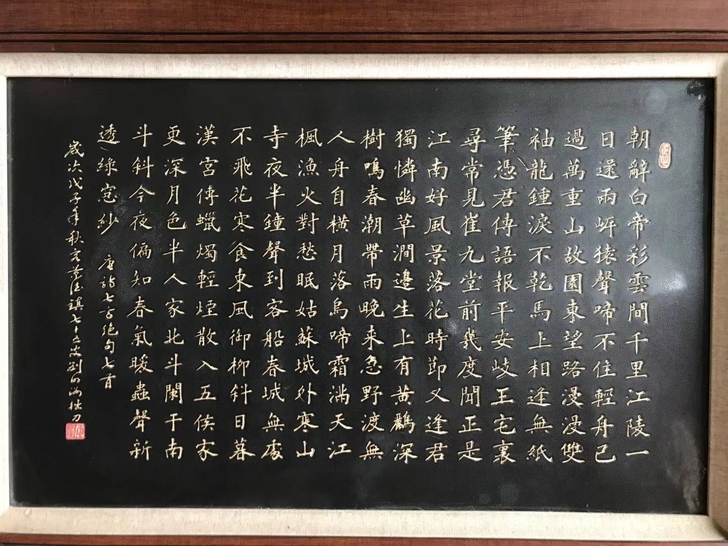 朝辭白帝彩雲間千里江陵一
日還兩岍猿聲啼不住輕舟已
過萬重山故園東望路漫漫雙
袖龍鍾淚不乾馬上相逢無紙
筆憑君傳語報平安岐王宅裏
尋常見崔九堂前幾度聞正是
江南好風景落花時節又逢君
獨憐幽草澗邊生上有黃鸝深
樹鳴春潮帶雨晚来急野渡無
人舟自橫月落烏啼霜滿天江
楓漁火對愁眠姑蘇城外寒山
寺夜半鐘聲到客船春城無處
不飛花寒食東風御柳斜日暮
漢宮傳蠟燭輕煙散入五侯家
更深月色半人家北斗闌干南
斗斜今夜偏知春氣暖蟲聲新
透綠窓紗 唐詩七言絕句七首
歲次戊子年秋七十五歲刻